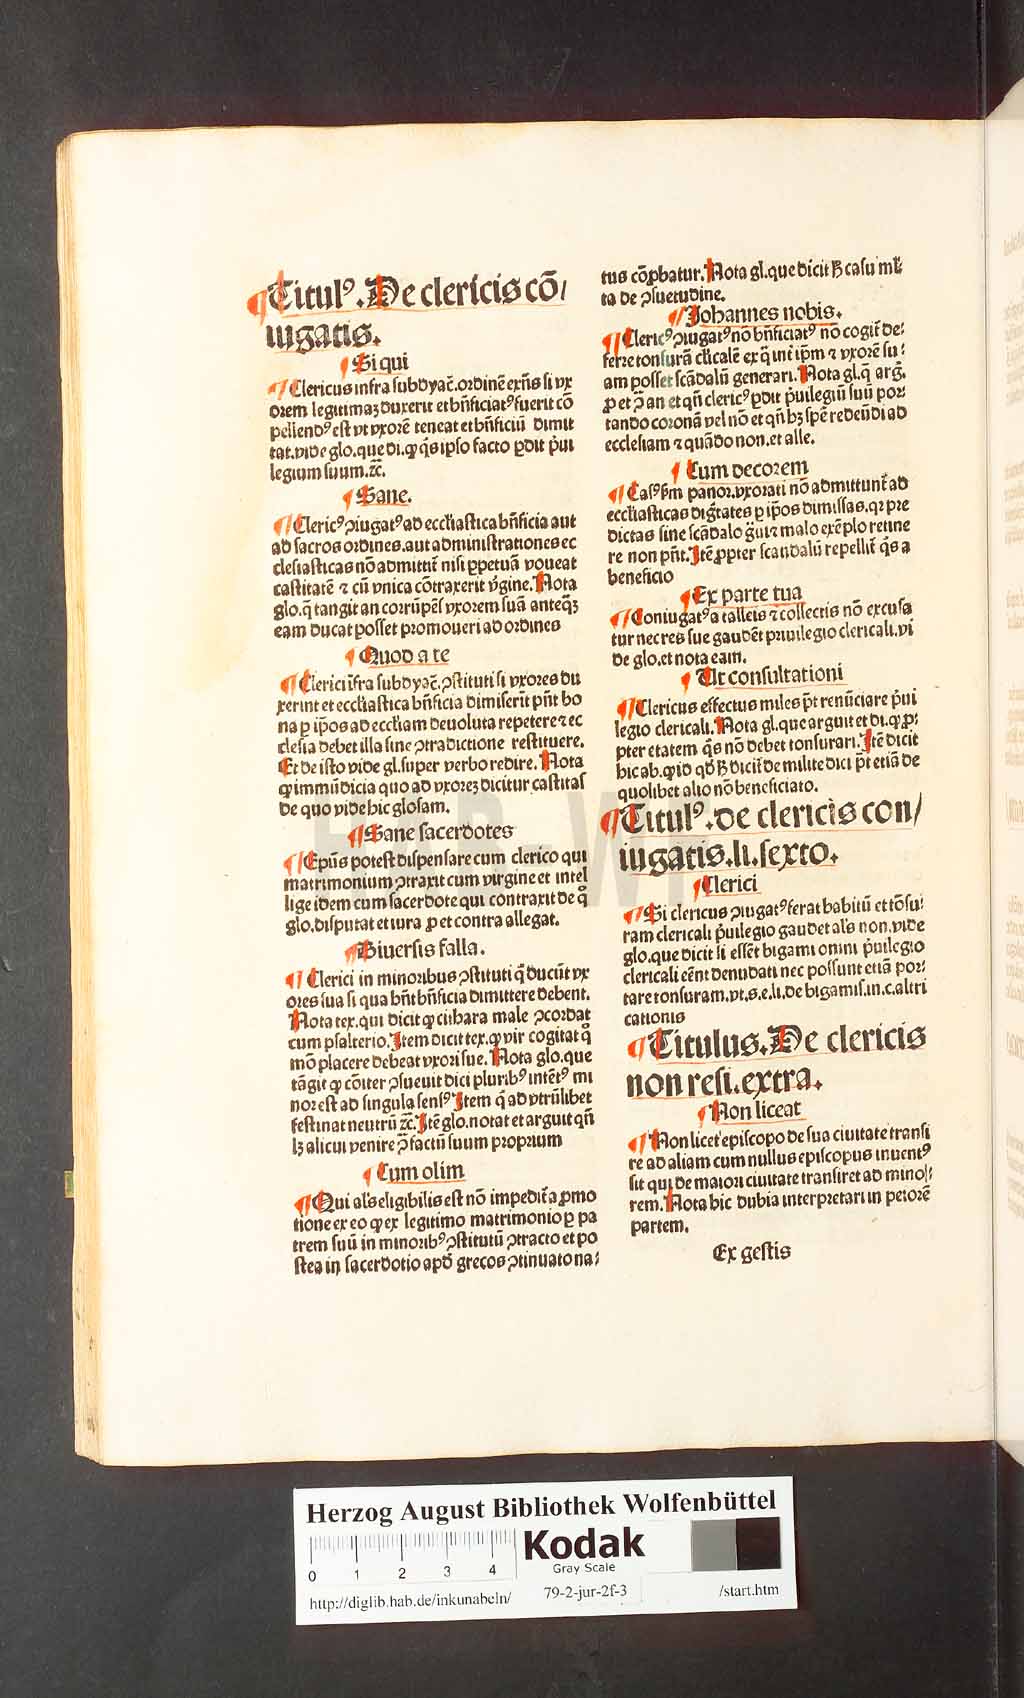 ¶Titulꝰ.De clericis cō/
iugatis.
¶Si qui
¶Clericus infra subdyac̄.ordinē exn̄s si vx
orem legitimaꝫ duxerit et bn̄ficiatꝰ fuerit cō
pellendꝰ est vt vxorē teneat et bn̄ficiū dimit
tat.vide glo.que di.ꝙ q̄s ipso facto ꝑdit p̄ui
legium suum.ꝛc̄.
¶Sane.
¶Clericꝰ ꝯiugatꝰ ad eccl̄iastica bn̄ficia aut
ad sacros ordines.aut administrationes ec
clesiasticas nō admittit̄ nisi ꝑpetuā voueat
castitatē ⁊ cū vnica cōtraxerit v̄gine.Nota
glo.q̄ tangit an corrūpēs vxorem suā anteq̄ꝫ
eam ducat posset promoueri ad ordines
¶Quod a te
¶Clerici īfra subdyac̄.ꝯstituti si vxores du
xerint et eccl̄iastica bn̄ficia dimiserīt pn̄t bo
na ꝑ ip̄os ad eccl̄iam deuoluta repetere ⁊ ec
clesia debet illa sine ꝯtradictione restituere.
Et de isto vide gl.super verbo redire.Nota
ꝙ immūdicia quo ad vxoreꝫ dicitur castitas
de quo vide hic glosam.
¶Sane sacerdotes
¶Ep̄us potest dispensare cum clerico qui
matrimonium ꝯtraxit cum virgine et intel
lige idem cum sacerdote qui contraxit de q̄
glo.disputat et iura ꝓ et contra allegat.
¶Diuersis falla.
¶Clerici in minoribus ꝯstituti q̄ ducūt vx
ores sua si qua bn̄t bn̄ficia dimittere debent.
Nota tex.qui dicit ꝙ cithara male ꝯcordat
cum psalterio.Item dicit tex.ꝙ vir cogitat q̄
mō placere debeat vxori sue.Nota glo.que
tāgit ꝙ cōiter ꝯsueuit dici pluribꝰ intētꝰ mi
nor est ad singula sensꝰ Item q̄ ad vtrūlibet
festinat neutrū ꝛc̄.Itē glo.notat et arguit qn̄
lꝫ alicui venire ꝯ̄ factū suum proprium
¶Cum olim
¶Qui al's eligibilis est nō impedit̄ a ꝓmo
tione ex eo ꝙ ex legitimo matrimonio ꝑ pa
trem suū in minoribꝰ ꝯstitutū ꝯtracto et po
stea in sacerdotio apd̄ grecos ꝯtinuato na:
tus cōꝓbatur.Nota gl.que dicit ꝧ casu ml̄
ta de ꝯsuetudine.
¶Johannes nobis.
¶Clericꝰ ꝯiugatꝰ nō bn̄ficiatꝰ nō cogit̄ de:
ferre tonsurā cl̄icalē ex q̄ int̄ ip̄m ⁊ vxorē su:
am posset scādalū generari.Nota gl.q̄ arḡ.
ꝓ et ꝯ an et qn̄ clericꝰ ꝑdit p̄uilegiū suū por
tando coronā vel nō et qn̄ hꝫ spē redeūdi ad
ecclesiam ⁊ quādo non.et alle.
¶Cum decorem
¶Casꝰ ẜm panor.vxorati nō admittunt̄ ad
eccl̄iasticas diḡtates ꝑ ip̄os dimissas.qꝛ pre
dictas sine scādalo g̈uiꝫ malo exēplo retine
re non pn̄t.Itē ꝓpter scandalū repellit̄ q̄s a
beneficio
¶Ex parte tua
¶Coniugatꝰ a talleis ⁊ collectis nō excusa
tur nec res sue gaudēt priuilegio clericali.vi
de glo.et nota eam.
¶Ut consultationi
¶Clericus effectus miles p̄t renūciare p̄ui
legio clericali.Nota gl.que arguit et di.ꝙ ꝓ:
pter etatem q̄s nō debet tonsurari.Itē dicit
hic ab.ꝙ id qd̄ ꝧ dicit̄ de milite dici p̄t etiā de
quolibet alio nō beneficiato.
¶Titulꝰ.de clericis con/
iugatis.li.sexto.
¶Clerici
¶Si clericus ꝯiugatꝰ ferat habitū et tōsu:
ram clericali p̄uilegio gaudet al's non.vide
glo.que dicit si essēt bigami omni p̄uilegio
clericali eēnt denudati nec possunt etiā por:
tare tonsuram.vt.s.e.li.de bigamis.in.c.altri
cationis
¶Titulus.De clericis
non resi.extra.
¶Non liceat
¶Non licet episcopo de sua ciuitate transi
re ad aliam cum nullus episcopus inuentꝰ
sit qui de maiori ciuitate transiret ad mino:
rem.Nota hic dubia interpretari in peiorē
partem.
Ex gestis
HAB-WF
Herzog August Bibliothek Wolfenbüttel
0 1 2 3 4
Kodak
Gray Scale
http://diglib.hab.de/inkunabeln/ 79-2-jur-2f-3 /start.htm